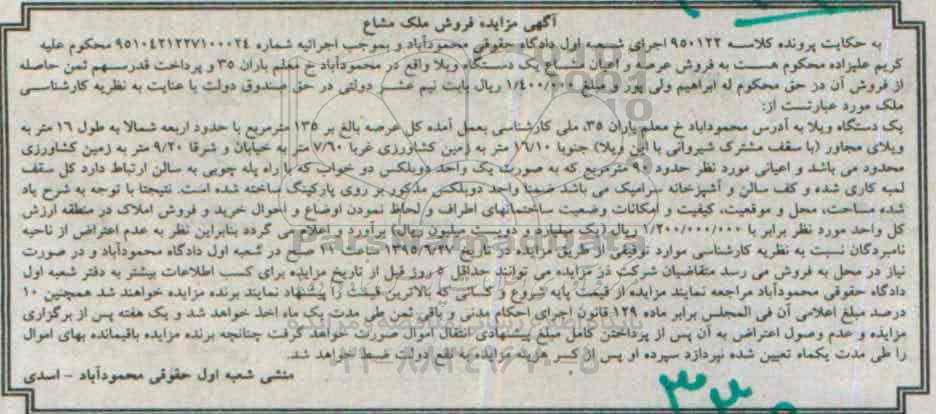 آگهی مزایده فروش ملک مشاع
به حکایت پرونده کلاسه ۹۵۰۱۲۲ اجرای شعبه اول دادگاه حقوقی محمودآباد و بموجب اجرائیه شماره ۹۵۱۰۴۲۱۲۲۷۱۰۰۰۲۴ محکوم علیه
کریم علیزاده محکوم هست به فروش عرصه و اعیان مشاع یک دستگاه ویلا واقع در محمودآباد خ معلم باران ۳۵ و پرداخت قدرسهم ثمن حاصله
از فروش آن در حق محکوم له ابراهیم ولی پور و مبلغ ۱/۴۰۰/۰۰۰ ریال بابت نیم عشر دولتی در حق صندوق دولت با عنایت به نظریه کارشناسی
ملک مورد عبارتست از:
یک دستگاه ویلا به آدرس محموداباد خ معلم باران ۳۵، ملی کارشناسی بعمل آمده کل عرصه بالغ بر ۱۳۵ مترمربع با حدود اربعه شمالا به طول ۱۶ متر به
ویلای مجاور (با سقف مشترک شیروانی با این ویلا) جنوبا ۱۶/۱۰ متر به زمین کشاورزی غربا ۷/۶۰ متر به خیابان و شرقا ۹/۲۰ متر به زمین کشاورزی
محدود می باشد و اعیانی مورد نظر حدود ۹۰ مترمربع که به صورت یک واحد دوبلکس دو خواب که با راه پله چوبی به سالن ارتباط دارد کل سقف
لمبه کاری شده و کف سالن و آشپزخانه سرامیک می باشد ضمنا واحد دوبلکس مذکور بر روی پارکینگ ساخته شده است. نتیجتا با توجه به شرح یاد
شده مساحت، محل و موقعیت، کیفیت و امکانات وضعیت ساختمانهای اطراف و لحاظ نمودن اوضاع و احوال خرید و فروش املاک در منطقه ارزش
کل واحد مورد نظر برابر با ۱/۲۰۰/۰۰۰/۰۰۰ ریال (یک میلیارد و دویست میلیون ریال) برآورد و اعلام می گردد بنابراین نظر به عدم اعتراض از ناحیه
نامبردگان نسبت به نظریه کارشناسی موارد توقیفی از طریق مزایده در تاریخ ۱۳۹۵/۶/۲۷ ساعت ۱۱ صبح در شعبه اول دادگاه محمودآباد و در صورت
نیاز در محل به فروش می رسد متقاضیان شرکت در مزایده می توانند حداقل ۵ روز قبل از تاریخ مزایده برای کسب اطلاعات بیشتر به دفتر شعبه اول
دادگاه حقوقی محمودآباد مراجعه نمایند مزایده از قیمت پایه شروع و کسانی که بالاترین قیمت را پیشنهاد نمایند برنده مزایده خواهند شد همچنین ۱۰
درصد مبلغ اعلامی آن فی المجلس برابر ماده ۱۲۹ قانون اجرای احکام مدنی و باقی ثمن طی مدت یک ماه اخذ خواهد شد و یک هفته پس از برگزاری
مزایده و عدم وصول اعتراض به آن پس از پرداختن کامل مبلغ پیشنهادی انتقال اموال صورت خواهد گرفت چنانچه برنده مزایده باقیمانده بهای اموال
را طی مدت یکماه تعیین شده نپردازد سپرده او پس از کسر هزینه مزایده به نفع دولت ضبط خواهد شد.
منشی شعبه اول حقوقی محمودآباد - اسدی